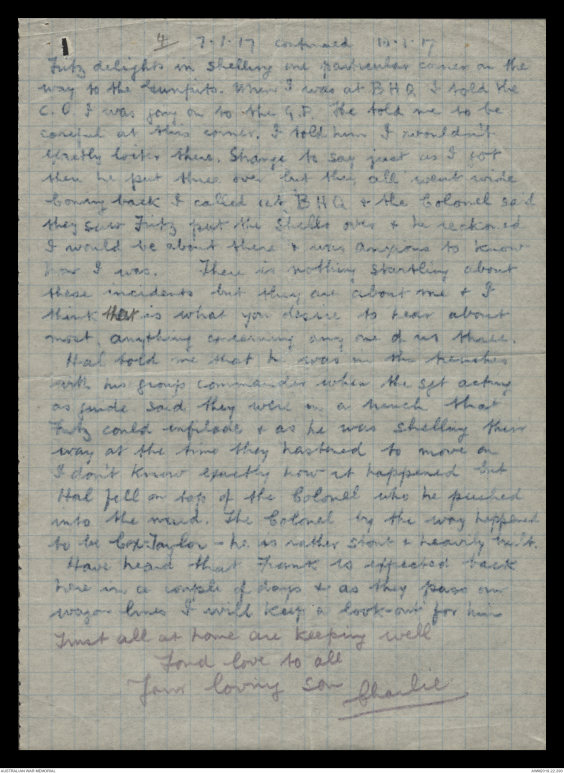 4 7.1.17 continued 10.1.17
Fritz delights in shelling one particular corner on the
way to the Gunpits. When I was at BHQ I told the
C.O. I was going on to the G.P. He told me to be
careful at this corner. I told him I wouldn't
exactly loiter there. Strange to say just as I got
there he put three over but they all went wide
Coming back I called at BHQ & the Colonel said
they saw Fritz put the shells over & he reckoned
I would be about there & was anxious to know
how I was. There is nothing startling about
these incidents but they are about me & I
think that is what you desire to hear about
most, anything concerning any one of us three.
Hal told me that he was in the trenches
with his group commander when the sgt acting
as guide said they were in a trench that
Fritz could enfilade & as he was shelling their
way at the time they hastened to move on
I don't know exactly how it happened but
Hal fell on top of the Colonel who he pushed
into the mud. The Colonel by the way happened
to be Cox-Taylor - he is rather stout & heavily built.
Have heard that Frank is expected back
here in a couple of days & as they pass our
wagon lines I will keep a look-out for him
Trust all at home are keeping well
Fond love to all
Your loving son Charlie
AUSTRALIAN WAR MEMORIAL